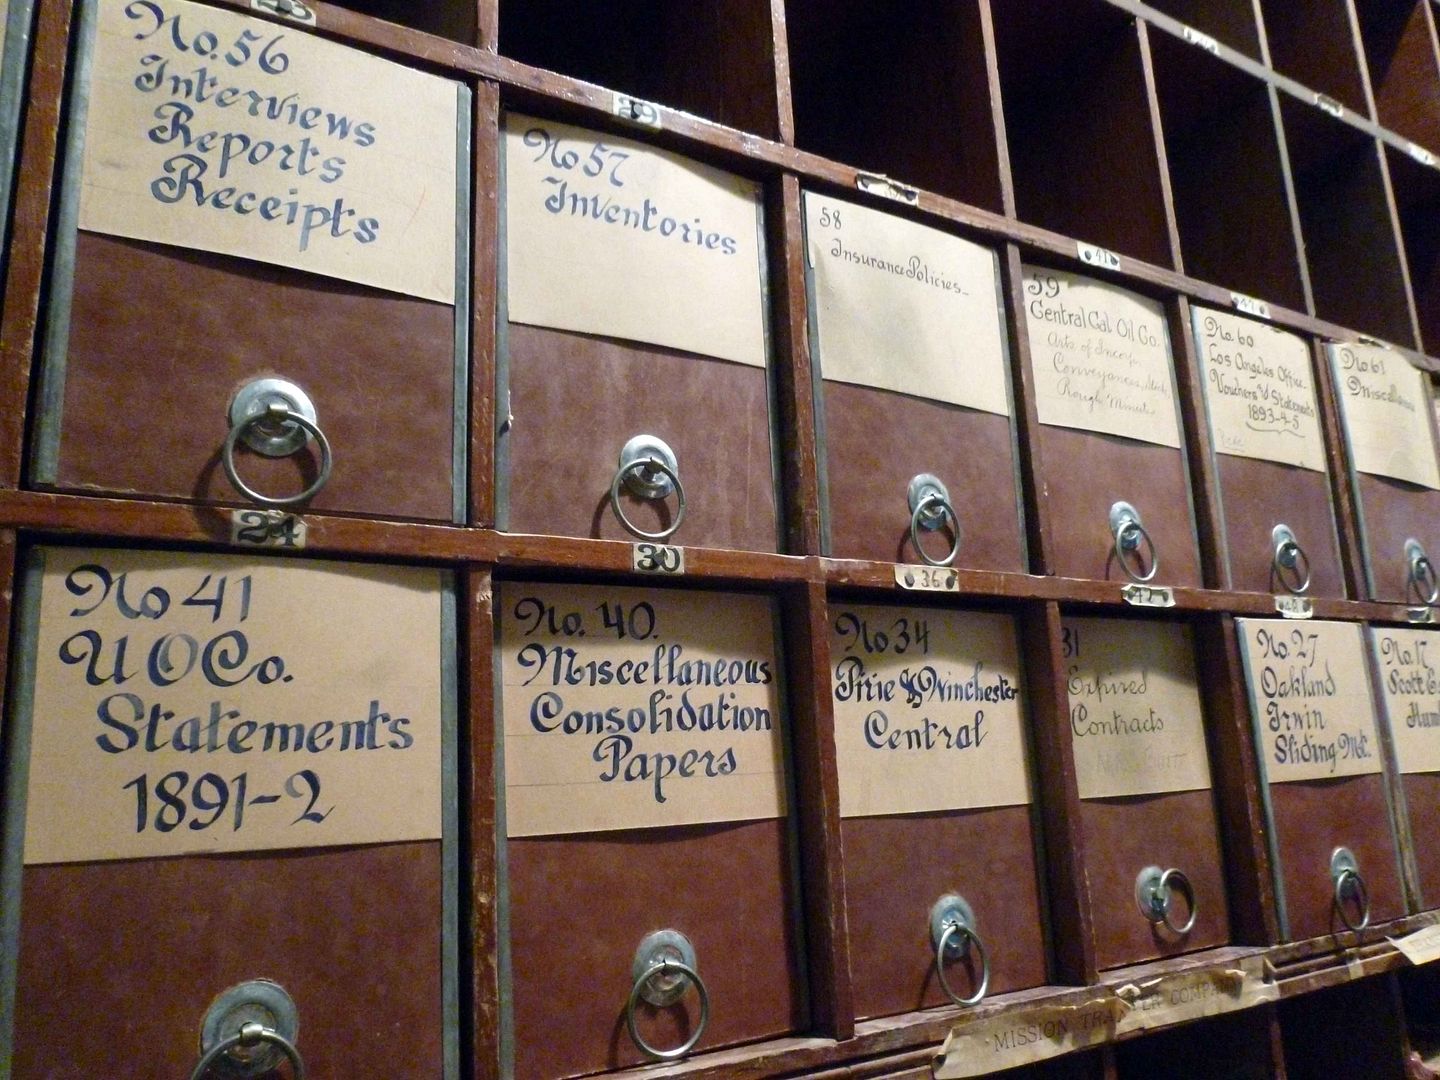 No. 56
Interviews
Reports
Receipts
29
No 57
Inventories
58
Insurance Policies
41
59
Central Cal Oil Co.
Arts of Incorp.
Conveyances,
Rough Minutes
47
No. 60
Los Angeles Office
Vouchers & Statements
1893-4-5
No 61
Miscellaneous
24
No 41
U O Co.
Statements
1891-2
30
No. 40.
Miscellaneous
Consolidation
Papers
36
No 34
Pirie & Winchester
Central
42
31
Expired
Contracts
48
No. 27
Oakland
Irwin
Sliding Mt.
No. 17
Scott &
MISSION TRANSFER COMPANY